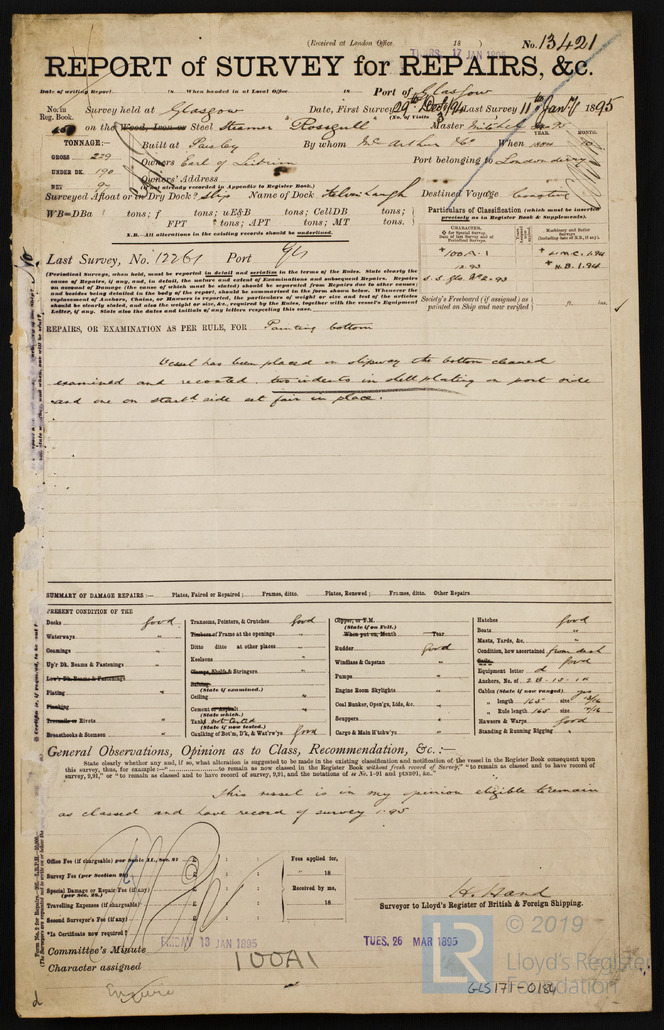 (Received at London Office 18 )
THURS. 17 JAN 1895
No. 13421
REPORT of SURVEY for REPAIRS, &c.
Date of writing Report 18 When handed in at Local Office 18 Port of Glasgow
No. in Reg. Book. Survey held at Glasgow Date, First Survey 29th Dec 94 Last Survey 11th Jany 1895
(No. of Visits 3)
on the Wood, Iron or Steel Steamer "Rossgull" Master Mitchell
TONNAGE:— Built at Paisley By whom McArthur & Co When YEAR. MONTH.
GROSS 239 Owners Earl of Leitrim Port belonging to Londonderry
UNDER DK. 190 Owners' Address
NET (if not already recorded in Appendix to Register Book.)
Surveyed Afloat or in Dry Dock? Slip Name of Dock Kelvinhaugh Destined Voyage Coasting
WB=DBa tons; f tons; uE&B tons; CellDB tons;
FPT tons; APT tons; MT tons.
N.B.—All alterations in the existing records should be underlined.
Particulars of Classification (which must be inserted precisely as in Register Book & Supplements).
CHARACTER. Machinery and Boiler Surveys (including date of N.B., if any).
+100A.1 +L.M.C. 1.94
12.93 +N.B. 1.94
s.s. Gls. No 2-93
Last Survey, No. 12261 Port Gls
Society's Freeboard (if assigned) as painted on Ship and now verified ft. ins.
(Periodical Surveys, when held, must be reported in detail and seriatim in the terms of the Rules. State clearly the
cause of Repairs, if any, and, in detail, the nature and extent of Examinations and subsequent Repairs. Repairs
on account of Damage (the cause of which must be stated) should be separated from Repairs due to other causes;
and besides being detailed in the body of the report, should be summarised in the form shown below. Whenever the
replacement of Anchors, Chains, or Hawsers is reported, the particulars of weight or size and test of the articles
should be clearly stated, and also the weight or size, &c., required by the Rules, together with the vessel's Equipment
Letter, if any. State also the dates and initials of any letters respecting this case.
REPAIRS, OR EXAMINATION AS PER RULE, FOR Painting bottom
Vessel has been placed on slipway the bottom cleaned
examined and recoated. two indents in shell plating on port side
and one on starbd side set fair in place.
SUMMARY OF DAMAGE REPAIRS:— Plates, Faired or Repaired; Frames, ditto. Plates, Renewed; Frames, ditto. Other Repairs
PRESENT CONDITION OF THE
Decks good
Waterways "
Coamings "
Up'r Dk. Beams & Fastenings
Low'r Dk. Beams & Fastenings
Plating "
Planking
Treenails or Rivets "
Breasthooks & Stemson "
Transoms, Pointers, & Crutches good
Timbers of Frame at the openings "
Ditto ditto at other places "
Keelsons "
Clamps, Shelfs & Stringers "
Salting (State if examined.)
Ceiling "
Cement or Asphalt (State which.) "
Tanks not tested (State if now tested.)
Caulking of Bot'm, D'k, & Wat'rw'ys good
Copper, or Y.M. (State if on Felt.)
When put on, Month Year
Rudder good
Windlass & Capstan "
Pumps "
Engine Room Skylights "
Coal Bunker, Open'gs, Lids, &c. "
Scuppers "
Cargo & Main H'tchw'ys "
Hatches good
Boats "
Masts, Yards, &c. "
Condition, how ascertained from deck
Sails good
Equipment letter d
Anchors, No. of 2B. 1S. 1K
Cables (State if now ranged) yes
" length 165 size
Rule length 165 size
Hawsers & Warps good
Standing & Running Rigging "
General Observations, Opinion as to Class, Recommendation, &c.:—
State clearly whether any, and if so, what alteration is suggested to be made in the existing classification and notification of the vessel in the Register Book consequent upon
this survey, thus, for example:—" to remain as now classed in the Register Book without fresh record of Survey," "to remain as classed and to have record of
survey, 9,91," or "to remain as classed and to have record of survey, 9,91, and the notations of ss No. 1-91 and ptND91, &c."
This vessel is in my opinion eligible to remain
as classed and have record of survey 1.95
Office Fee (if chargeable) per Scale II., Sec. 27 £ : :
Survey Fee (per Section 28) £ : :
Special Damage or Repair Fee (if any) (per Sec. 28.) £ : :
Travelling Expenses (if chargeable) £ : :
Second Surveyor's Fee (if any) £ : :
*Is Certificate now required?
Fees applied for, 18
Received by me, 18
H. Hand
Surveyor to Lloyd's Register of British & Foreign Shipping.
Committee's Minute FRIDAY 18 JAN 1895 TUES. 26 MAR 1895
Character assigned 100A1
© 2019
LR
Lloyd's Register
Foundation
GLS171-0184